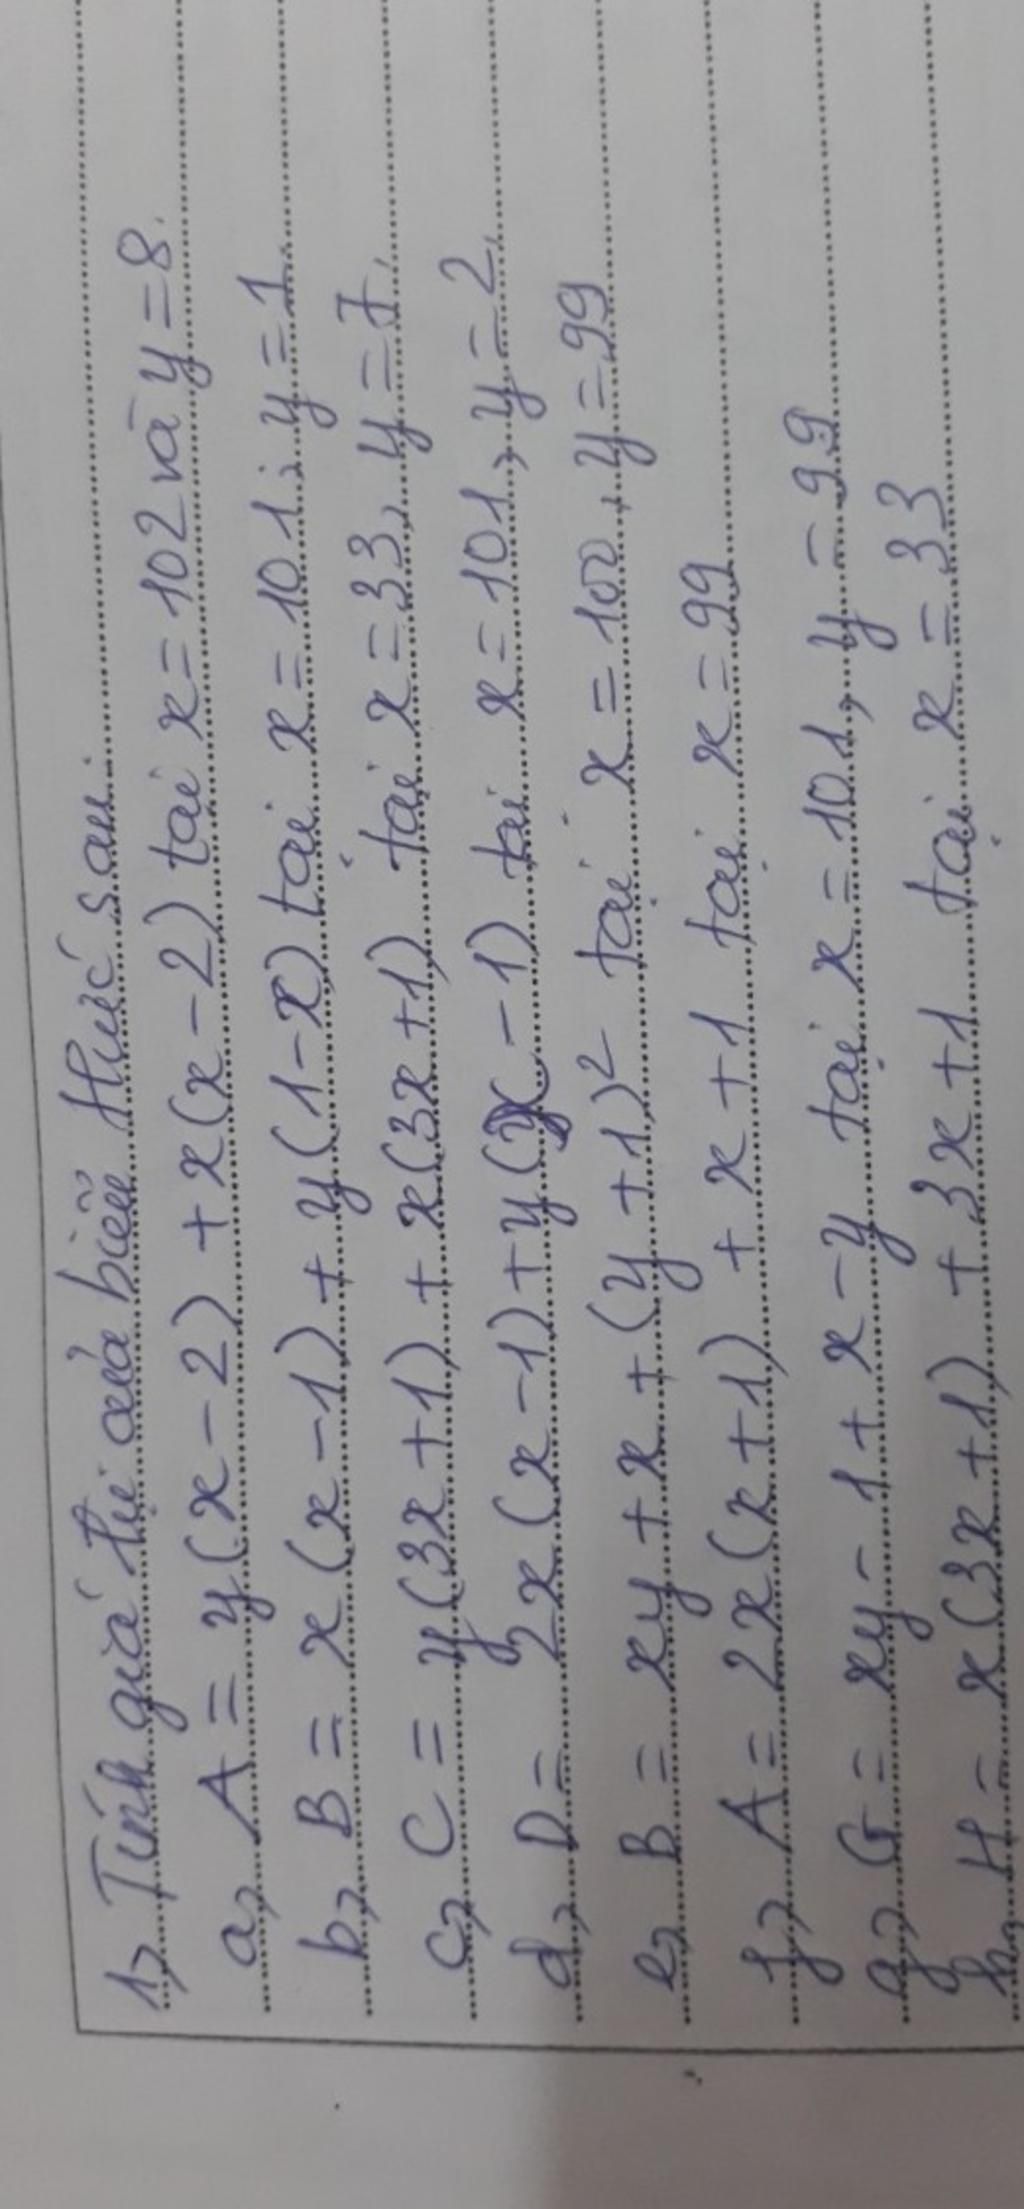 1, Tính giá trị của biểu thức sau:
a, A = y(x-2) + x(x-2) tại x = 102 và y = 8.
b, B = x(x-1) + y(1-x) tại x = 101; y = 1
c, C = y(3x+1) + x(3x+1) tại x = 33, y = 1.
d, D = 2x(x-1) + y(x-1) tại x = 101, y = 2.
e, B = xy + x + (y+1)² tại x = 100, y = 99
f, A = 2x(x+1) + x + 1 tại x = 99
g, G = xy - 1 + x - y tại x = 101, y = 99
h, H = x(3x+1) + 3x + 1 tại x = 33